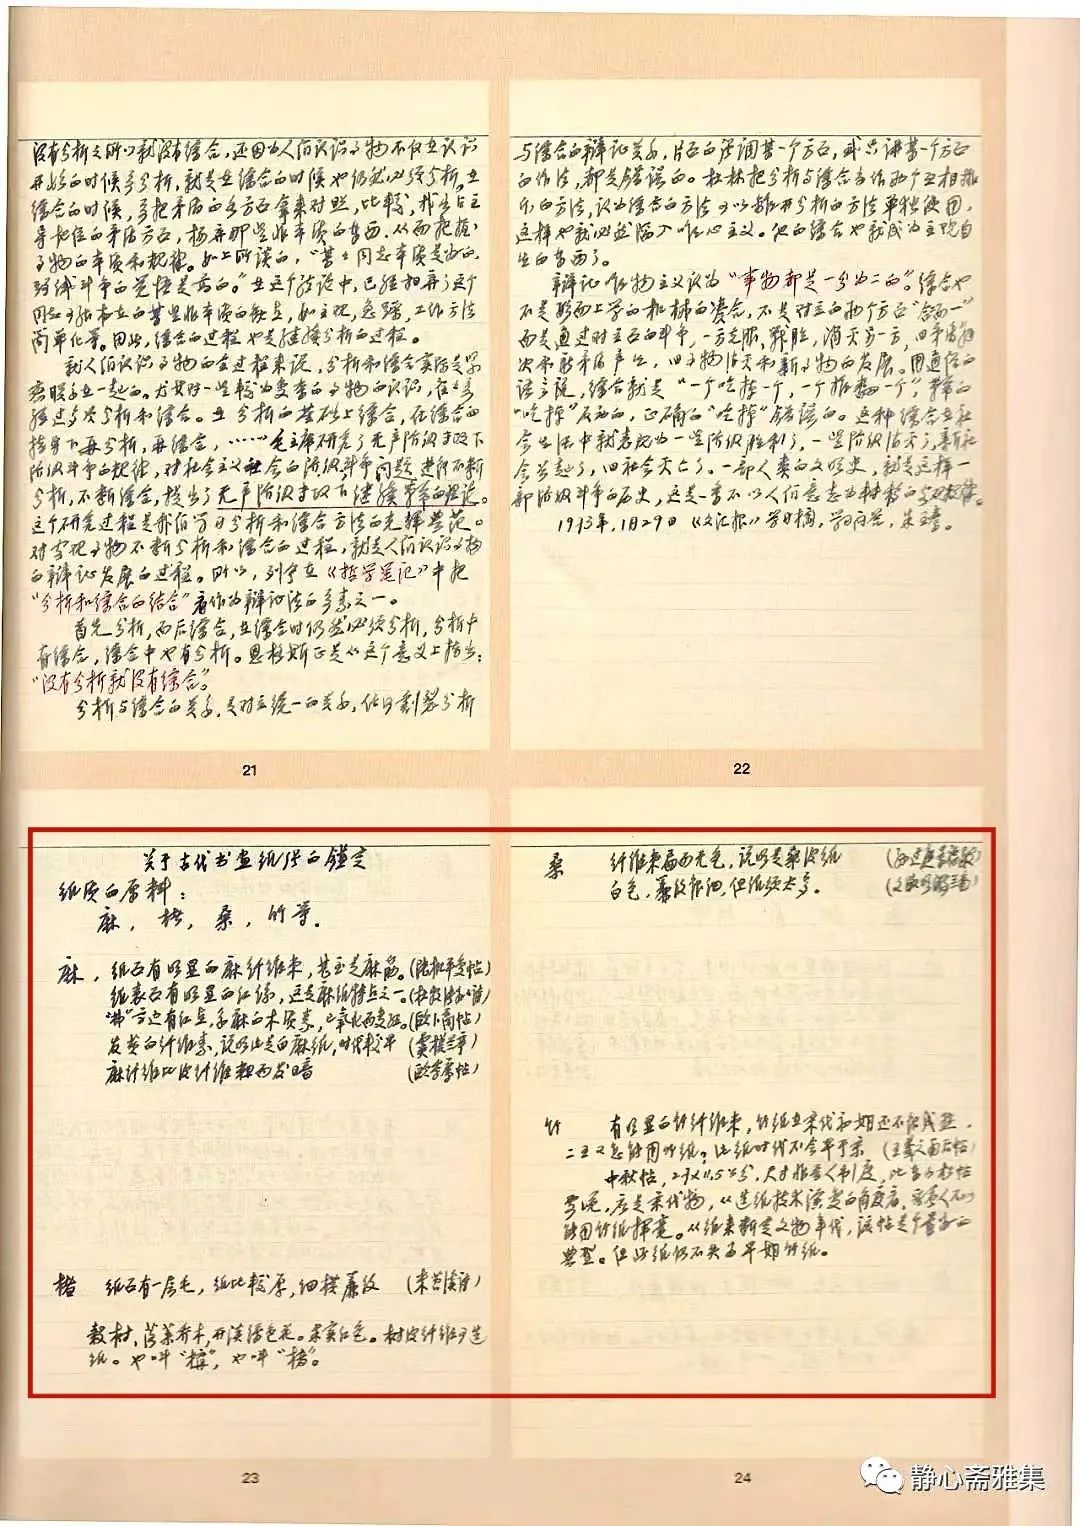 没有分析之所以就没有综合，还因为人们认识事物不仅在认识
开始的时候要分析，就是在综合的时候也仍然必须分析。在
综合的时候，要把矛盾的各方面拿来对照，比较，找出占主
导地位的矛盾方面，扬弃那些非本质的东西，从而把握
事物的本质和规律。如上所谈的，“某同志本质是好的，
路线斗争的觉悟是高的。”在这个结论中，已经扬弃了这个
同志身上存在的某些非本质的缺点，如主观，急躁，工作方法
简单化等。因此，综合的过程也是继续分析的过程。
就人们认识事物的全过程来说，分析和综合实际是紧
密联系在一起的。尤其对一些较为复杂的事物的认识，往往要
经过多次分析和综合。在分析的基础上综合，在综合的
指导下再分析，再综合，……毛主席研究了无产阶级专政下
阶级斗争的规律，对社会主义社会的阶级斗争问题进行不断
分析，不断综合，提出了无产阶级专政下继续革命的理论。
这个研究过程是我们学习分析和综合方法的光辉典范。
对客观事物不断分析和综合的过程，就是人们认识事物
的辩证发展的过程。所以，列宁在《哲学笔记》中把
“分析和综合的结合”看作为辩证法的要素之一。
首先分析，而后综合，在综合时仍然必须分析，分析中
有综合，综合中也有分析。恩格斯正是从这个意义上指出：
“没有分析就没有综合”。
分析与综合的关系，是对立统一的关系，任何割裂分析
21
与综合的辩证关系，片面的强调某一个方面，或只讲某一个方面
的作法，都是错误的。杜林把分析与综合看作两个互相排
斥的方法，认为综合的方法可以离开分析的方法单独使用，
这样也就必然陷入唯心主义。他的综合也就成为主观自
生的东西了。
辩证唯物主义认为“事物都是一分为二的”。综合也
不是形而上学的机械的凑合，不是对立的两个方面“合而一”
而是通过对立面的斗争，一方克服，战胜，消灭另一方，旧矛盾解
决和新矛盾产生，旧事物消灭和新事物的发展。用通俗的
话来说，综合就是“一个吃掉一个，一个推翻一个”，革命的
“吃掉”反动的，正确的“吃掉”错误的。这种综合在社
会生活中就表现为一些阶级胜利了，一些阶级消灭了，新社
会兴起了，旧社会灭亡了。一部人类的文明史，就是这样一
部阶级斗争的历史，这是一个不以人们意志为转移的客观规律。
1973年，1月29日《文汇报》
关于古代书画纸张的鉴定
纸质的原料：
麻，楮，桑，竹等。
麻，纸面有明显的麻纤维束，甚至是麻筋。（陆机平复帖）
纸表面有明显的红绿，这是麻纸特点之一。
旁边有红点，系麻的木质素，
发黄的纤维素，说明此是白麻纸，时代较早
麻纤维比皮纤维粗而发暗
楮 纸面有一层毛，纸比较厚，细横帘纹
榖树，落叶乔木，开淡绿色花。果实红色。树皮纤维可造
纸。也叫“構”，也叫“楮”。
23
桑 纤维束扁而无色，说明是桑皮纸
白色，帘纹很细，但纸须太多。
竹 有明显的竹纤维束，竹纸在宋代初期还不很成熟，
二王又怎能用竹纸？此纸时代不会早于宋
中秋帖，27×11.5公分，尺寸非晋人制度，
要晚，应是宋代物，从造纸技术演变的角度看，
能用竹纸挥毫。从纸来断定文物年代，该帖是个最好的
典型。但此纸仍不失为早期竹纸。
24
静心斋雅集